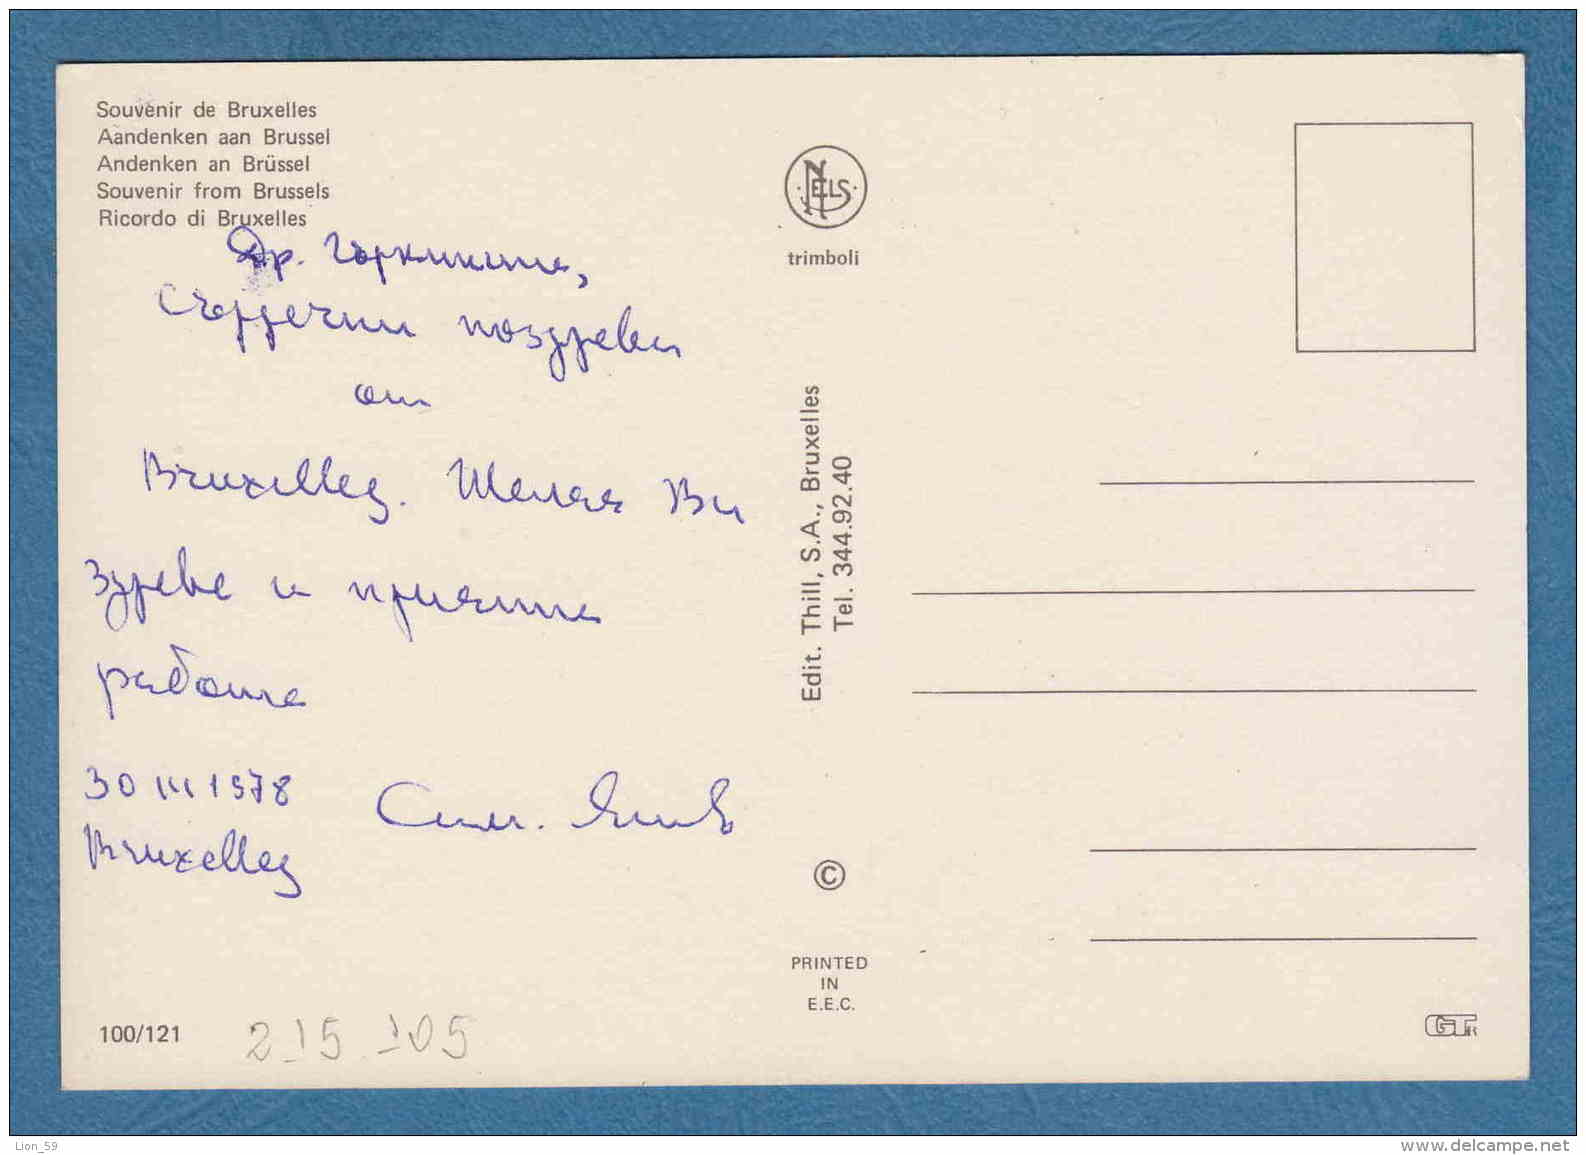 Souvenir de Bruxelles
Aandenken aan Brussel
Andenken an Brüssel
Souvenir from Brussels
Ricordo di Bruxelles
Др.
Сърдечни поздрави
от
Bruxelles. Желая Ви
здраве и приятна
работа
30 III 1978
Bruxelles
NELS
trimboli
Edit. Thill, S.A., Bruxelles
Tel. 344.92.40
©
PRINTED
IN
E.E.C.
100/121
215 105
Lion_59
www.delcampe.net